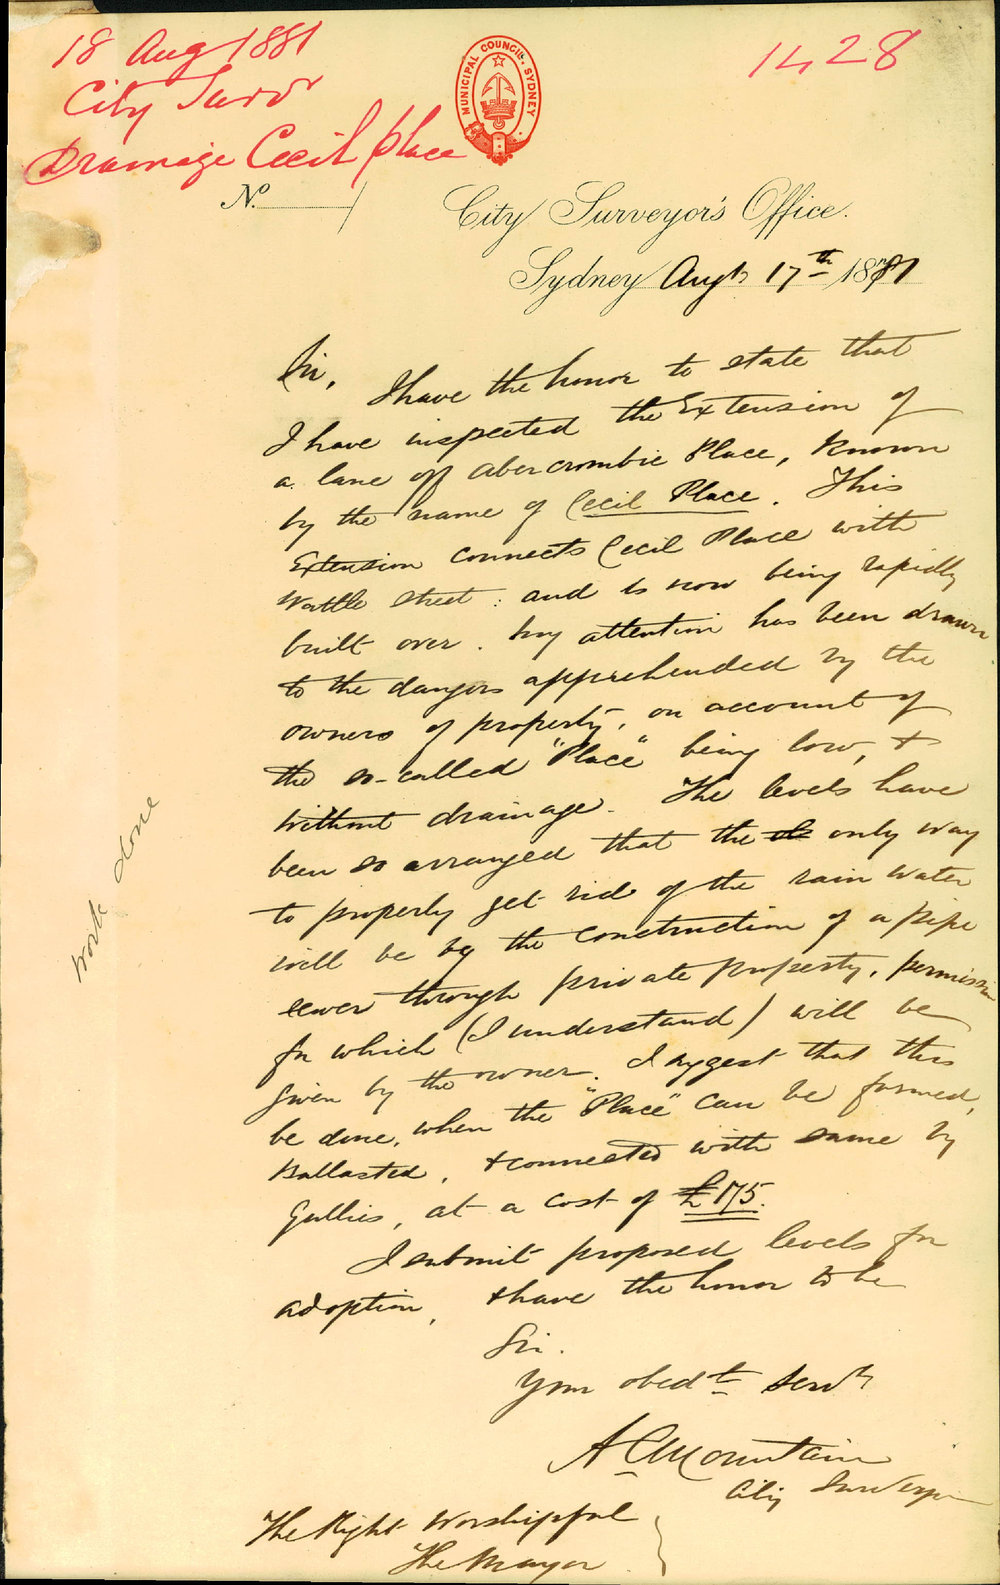 18 Aug 1881
City Survr
Drainage Cecil place
1428
MUNICIPAL COUNCIL. SYDNEY
No.
City Surveyor's Office.
Sydney Augt 17th 1881
Sir,
I have the honor to state that
I have inspected the Extension of
a lane off Abercrombie Place, Known
by the name of Cecil Place. This
Extension connects Cecil Place with
Wattle Street: and is now being rapidly
built over. My attention has been drawn
to the dangers apprehended by the
owners of property, on account of
the so-called "Place" being low, &
without drainage. The levels have
been so arranged that the only way
to properly get rid of the rain water
will be by the construction of a pipe
sewer through private property, permission
for which (I understand) will be
given by the owner. I suggest that this
be done, when the "Place" can be formed,
Ballasted, & connected with same by
Gullies, at a cost of £175.
I submit proposed levels for
adoption, & have the honor to be
Sir.
Your obedt Servt
A C Mountain
City Surveyor
The Right Worshipful
The Mayor
Work done